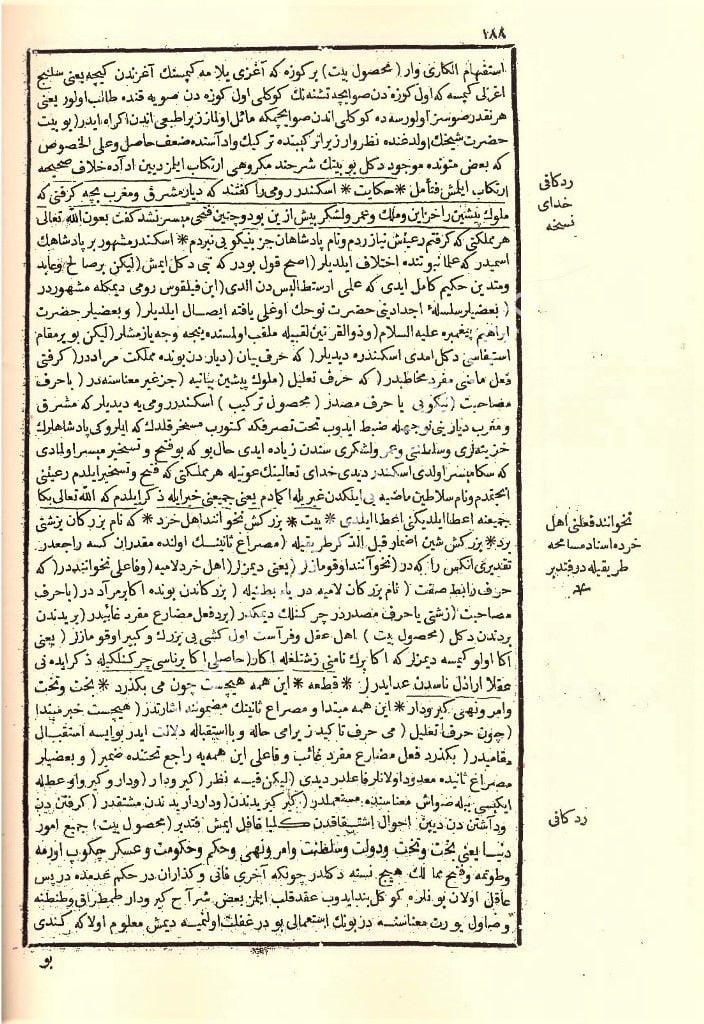 ١٨٨
استفهام انكارى وار (محصول بيت) بر كوزه كه آغزى يلامه كيمسنك آغزندن كيچه يعنى
اغزلى كيمسه كه اول كوزه دن صو ايچه تشنه نك كوكلى اول كوزه دن صويه قنده طالب اولور يعنى
هر نقدر صوسز اولورسه ده كوكلى اندن صو ايچمكه مائل اولماز زيرا طبعى اندن اكراه ايدر (بو بيت
حضرت شيخك اولدغنده نظر وار زيرا تركيبنده تركيك وادآسنده ضعف حاصلى وعلى الخصوص
كه بعض متونده موجود دكل بو بيتك شرحنده مكروهى ارتكاب ايلر ديين ادآده خلاف صحيحه
ارتكاب ايلمش فتأمل * حكايت * اسكندر رومى را كفتند كه ديار مشرق و مغرب بچه كرفتى كه
ملوك پيشين را خزاين وملك وعمر ولشكر بيش از ين بود وچنين فتحى ميسر نشد كفت بعون الله تعالى
هر مملكتى كه كرفتم رعيتش نيازردم ونام پادشاهان جز بنيكويى نبردم * اسكندر مشهور بر پادشاهك
اسميدر كه علما نبوتنده اختلاف ايلديلر (اصح قول بودر كه نبى دكل ايمش (ليكن بر صالح وعابد
ومتدين حكيم كامل ايدى كه علمى ارسطالیس دن الدى (ابن فيلقوس رومى ديمكله مشهوردر
(بعضيلر سلسلۀ اجدادينى حضرت نوحك اوغلى يافته ايصال ايلديلر (وبعضيلر حضرت
ابراهيم پيغمبره عليه السلام (وذوالقرنين لقبيله ملقب اولمسنده نيجه وجه يازمشلر (ليكن بو مقام
استيفاسى دكل امدى اسكندره ديديلر (كه حرف بيان (ديار دن بونده مملكت مراددر (كرفتى
فعل ماضى مفرد مخاطبدر (كه حرف تعليل (ملوك پيشين بيانيه (جز غير معناسنه در (با حرف
مصاحبت (نيكويى يا حرف مصدر (محصول تركيب) اسكندر رومى يه ديديلر كه مشرق
و مغرب ديارينى نوجهله ضبط ايدوب تحت تصرفكه كتورب مسخر قلدك كه ايلروكى پادشاهلرك
خزينه لرى وسلطنتى وعمر ولشكرى سندن زياده ايدى حال بو كه بو فتح و تسخير ميسر اولمادى
كه سكا ميسر اولدى اسكندر ديدى خداى تعالينك عونيله هر مملكتى كه فتح و تسخير ايلدم رعيتنى
انجتمدم ونام سلاطين ماضيه يى ايلكدن غيريله اكمادم يعنى جميعنى خيرايله ذكر ايلدم كه الله تعالى بكا
جميعنه اعطا ايلديكنى اعطا ايلدى * بيت * بزركش نخوانند اهل خرد * كه نام بزركان بزشتى
برد * بزركش شين اضمار قبل الذكر طريقيله (مصراع ثانينك اولنده مقدر ان كسه راجعدر
تقديرى انكس را كه در (نخوانند اوقومازلر (يعنى ديمزلر (اهل خرد لاميه (وفاعلى نخوانند در (كه
حرف رابط صفت (نام بزركان لاميه در ياء بطنيله (بزركاندن بونده اكابر مرآد در (با حرف
مصاحبت (زشتى يا حرف مصدر در چركنلك ديمكدر (برد فعل مضارع مفرد غائبدر (بريدندن
بردندن دكل (محصول بيت) اهل عقل وفرآست اول كشى يى بزرك و كبير اوقومازلر (يعنى
اكا اولو كيمسه ديمزلر كه اكابرك نامنى زشتلغله اكار (حاصلى اكابر ناسى چركنلكيله ذكر ايده نى
عقلا اراذل ناسدن عد ايدرلر * قطعه * اين همه هيچست چون مى بكذرد * بخت وتخت
وامر ونهى وكير ودار * اين همه مبتدا و مصراع ثانينك مضموننه اشارتدر (هيچست خبر مبتدا
(چون حرف تعليل (مى حرف تأكيد زيرا مى حاله و با استقباله دلالت ايدر بو ايسه استقبال
مقاميدر (بكذرد فعل مضارع مفرد غائب و فاعلى اين همه يه راجع تحتنده ضمير (و بعضيلر
مصراع ثانيده معدود اولانلر فاعلدر ديدى (ليكن فيه نظر (كير ودار (ودار وكير واو عطفله
ايكيسى بيله صواش معناسنده مستعملدر (كير كيريدندن (ودار داريدندن مشتقدر (كرفتن دن
وداشتن دن ديين احوال اشتقاقدن كليا غافل ايمش فتدبر (محصول بيت) جميع امور
دنيا يعنى بخت وتخت ودولت وسلطنت وامر ونهى وحكم وحكومت و عسكر چكوب اورمه
وطوتمه وفتح ممالك هيچ نسته دكلدر چونكه آخرى فانى و كذراندر حكم عدمده در پس
عاقل اولان بونلره كوكل بند ايدوب عقد قلب ايلمز بعض شرآح كير ودار طمطراق وطنطنه
و صاول يورت معناسنه در بونك استعمالى بو در غفلت اولنميه ديمش معلوم اولا كه كندى
بو
رد كافى
خداى
نسخه
نخوانند فعلنى اهل
خرده اسناد مسامحه
طريقيله در فتدبر
رد كافى